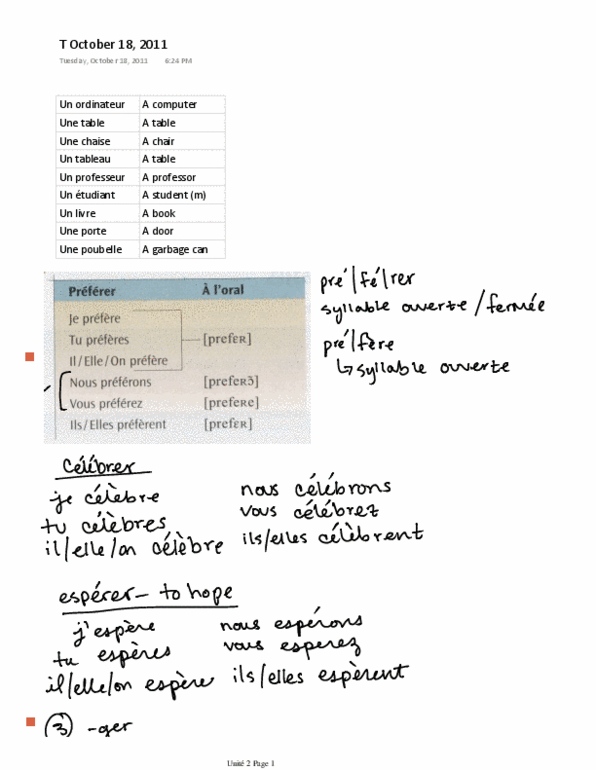 T October 18, 2011
Tuesday, October 18, 2011 6:24 PM
Un ordinateur A computer
Une table A table
Une chaise A chair
Un tableau A table
Un professeur A professor
Un étudiant A student (m)
Un livre A book
Une porte A door
Une poubelle A garbage can
Préférer À l'oral
Je préfère
Tu préfères [prefɛʀ]
Il/Elle/On préfère
Nous préférons [prefeʀɔ̃]
Vous préférez [prefeʀe]
Ils/Elles préfèrent [prefɛʀ]
pré/fé/rer
syllable ouverte/fermée
pré/fère
↳ syllable ouverte
Célébrer
je célèbre
tu célèbres
il/elle/on célèbre
nous célébrons
vous célébrez
ils/elles célèbrent
espérer – to hope
j'espère
tu espères
il/elle/on espère
nous espérons
vous esperez
ils/elles espèrent
(3) -ger
Unité 2 Page 1